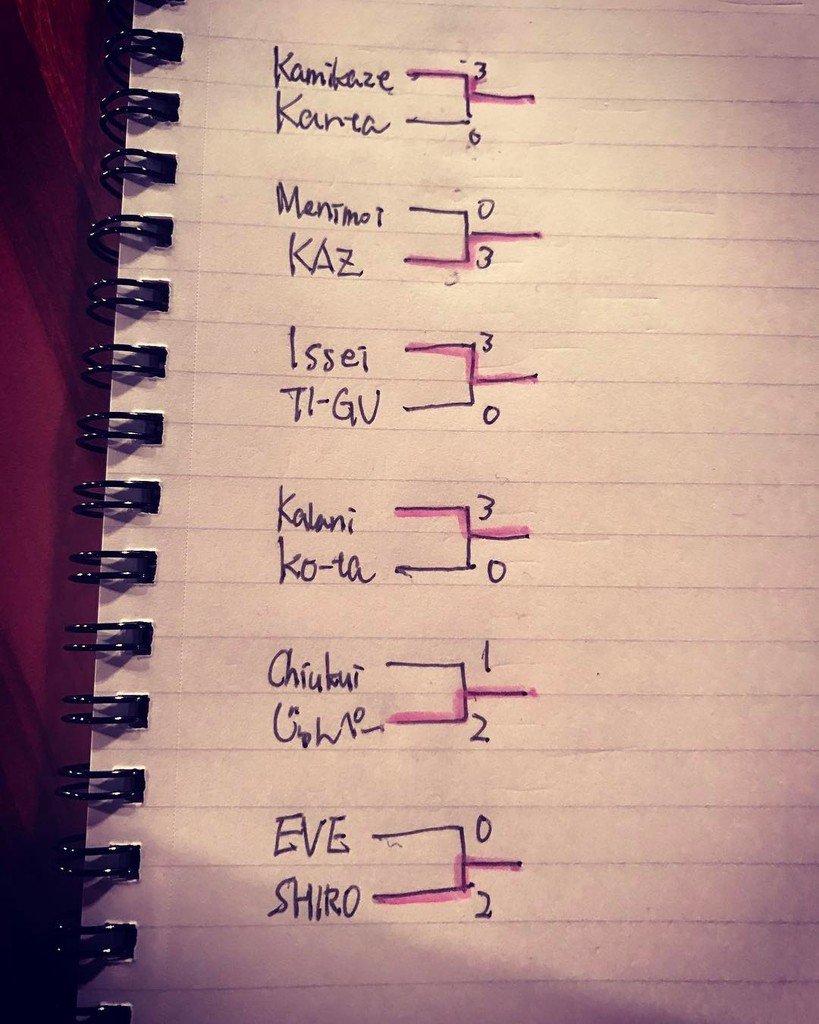 Kamikaze 3
Kanta 0
Menimoi 0
KAZ 3
Issei 3
TI-GU 0
Kalani 3
Ko-ta 0
Chiubui 1
じゃんぺー 2
EVE 0
SHIRO 2